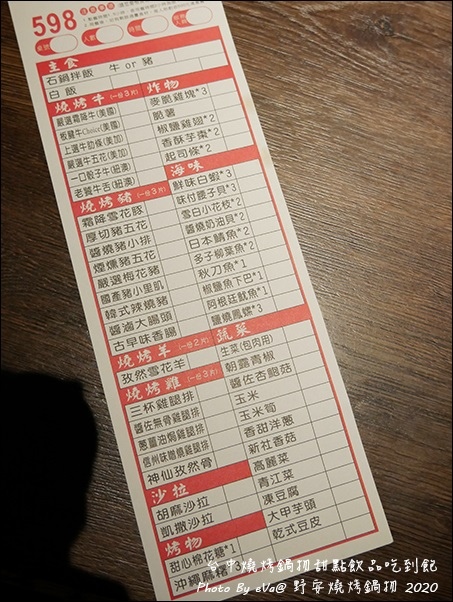 598
注意事項
桌號
人數
時間
主食
石鍋拌飯 牛 or 豬
白飯
燒烤牛(一份3片)
嚴選霜降牛(美國)
板腱牛Choice(美國)
上選牛肋條(美加)
嚴選牛五花(美加)
一口骰子牛(紐澳)
老饕牛舌(紐澳)
燒烤豬(一份3片)
霜降雪花豚
厚切豬五花
醬燒豬小排
煙燻豬五花
嚴選梅花豬
國產豬小里肌
韓式辣燒豬
醬滷大腸頭
古早味香腸
燒烤羊(一份2片)
孜然雪花羊
燒烤雞(一份3片)
三杯雞腿排
醬佐無骨雞腿排
蔥鹽油焗雞腿排
信州味噌燒雞腿排
神仙孜然骨
沙拉
胡麻沙拉
凱撒沙拉
烤物
甜心棉花糖*1
沖繩麻糬
炸物
麥脆雞塊*3
脆薯
椒鹽雞翅*2
香酥芋棗*2
起司條*2
海味
鮮味白蝦*3
味付腰子貝*3
雪白小花枝*2
醬燒奶油貝*2
日本鯖魚*2
多子柳葉魚*2
秋刀魚*1
椒鹽魚下巴*1
阿根廷魷魚*1
鹽燒鳳螺*3
蔬菜
生菜(包肉用)
朝露青椒
醬佐杏鮑菇
玉米
玉米筍
香甜洋蔥
新社香菇
高麗菜
青江菜
凍豆腐
大甲芋頭
乾式豆皮
台中燒烤鍋物甜點飲品吃到飽
Photo By eVa@ 野宴燒烤鍋物 2020